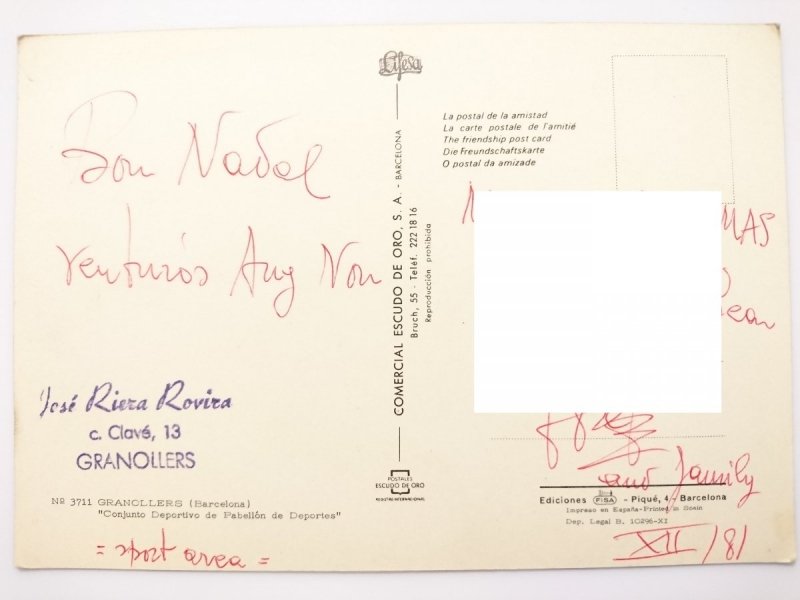 Bon Nadal
Venturós Any Nou
José Riera Rovira
c. Clavé, 13
GRANOLLERS
Nº 3711 GRANOLLERS (Barcelona)
"Conjunto Deportivo de Pabellón de Deportes"
= sport area =
Lifesa
COMERCIAL ESCUDO DE ORO, S. A. - BARCELONA
Bruch, 55 - Teléf. 222 18 16
Reproducción prohibida
POSTALES
ESCUDO DE ORO
REGISTRO INTERNACIONAL
La postal de la amistad
La carte postale de l'amitié
The friendship post card
Die Freundschaftskarte
O postal da amizade
and family
Ediciones FISA - Piqué, 4 - Barcelona
Impreso en España-Printed in Spain
Dep. Legal B. 10296-XI
XII/81